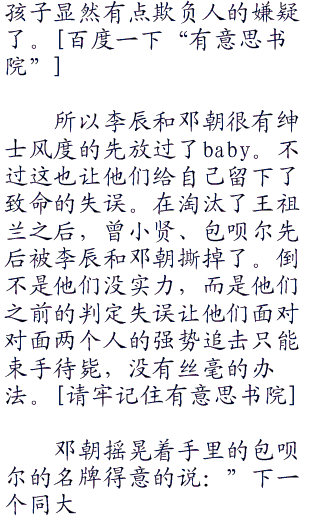 孩子显然有点欺负人的嫌疑
了。[百度一下“有意思书
院”]
所以李辰和邓朝很有绅
士风度的先放过了baby。不
过这也让他们给自己留下了
致命的失误。在淘汰了王祖
兰之后，曾小贤、包呗尔先
后被李辰和邓朝撕掉了。倒
不是他们没实力，而是他们
之前的判定失误让他们面对
对面两个人的强势追击只能
束手待毙，没有丝毫的办
法。[请牢记住有意思书院]
邓朝摇晃着手里的包呗
尔的名牌得意的说：”下一
个同大